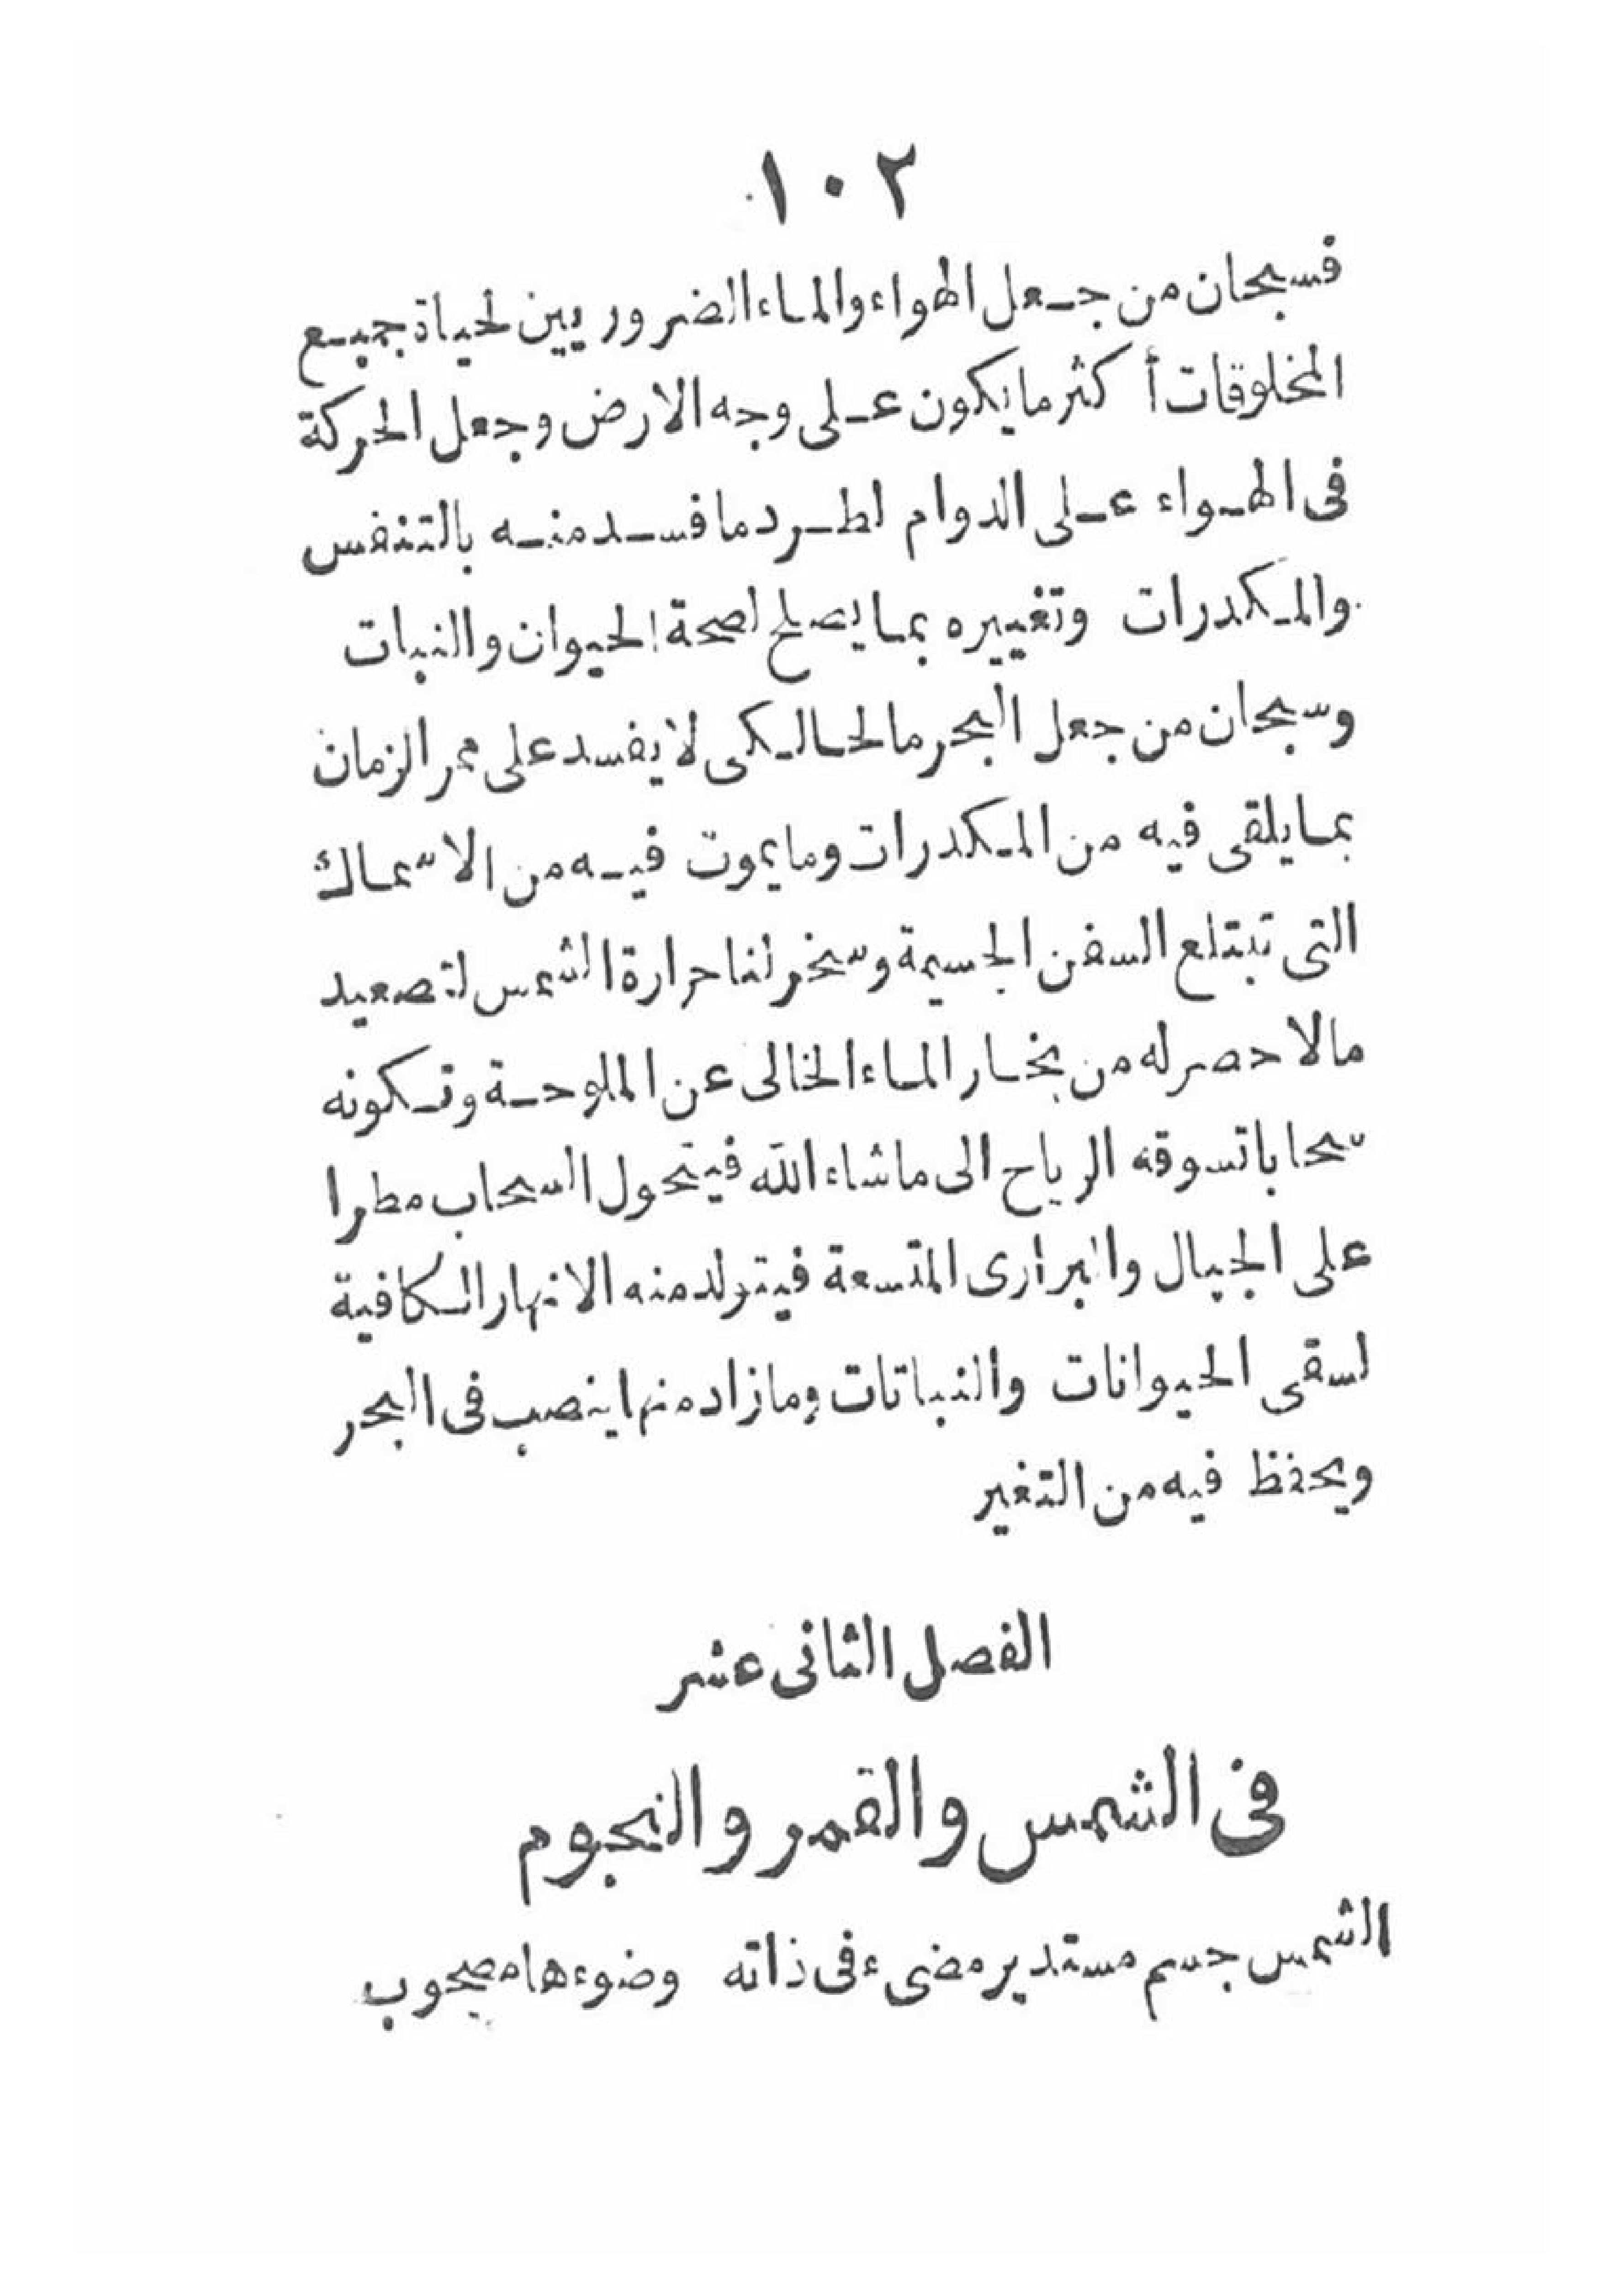 ١٠٢
فسبحان من جعل الهواء والماء الضروريين لحياة جميع
المخلوقات أكثر ما يكون على وجه الارض وجعل الحركة
فى الهواء على الدوام لطرد ما فسد منه بالتنفس
والمكدرات وتغييره بما يصلح لصحة الحيوان والنبات
وسبحان من جعل البحر مالحا لكى لا يفسد على ممر الزمان
بما يلقى فيه من المكدرات وما يموت فيه من الاسماك
التى تبتلع السفن الجسيمة وسخر لنا حرارة الشمس لتصعيد
مالا حصر له من بخار الماء الخالى عن الملوحة وتكونه
سحابا تسوقه الرياح الى ما شاء الله فيتحول السحاب مطرا
على الجبال والبرارى المتسعة فيتولد منه الانهار الكافية
لسقى الحيوانات والنباتات وما زاد منها ينصب فى البحر
ويحفظ فيه من التغير
الفصل الثانى عشر
فى الشمس والقمر والنجوم
الشمس جسم مستدير مضىء فى ذاته وضوءها مصحوب